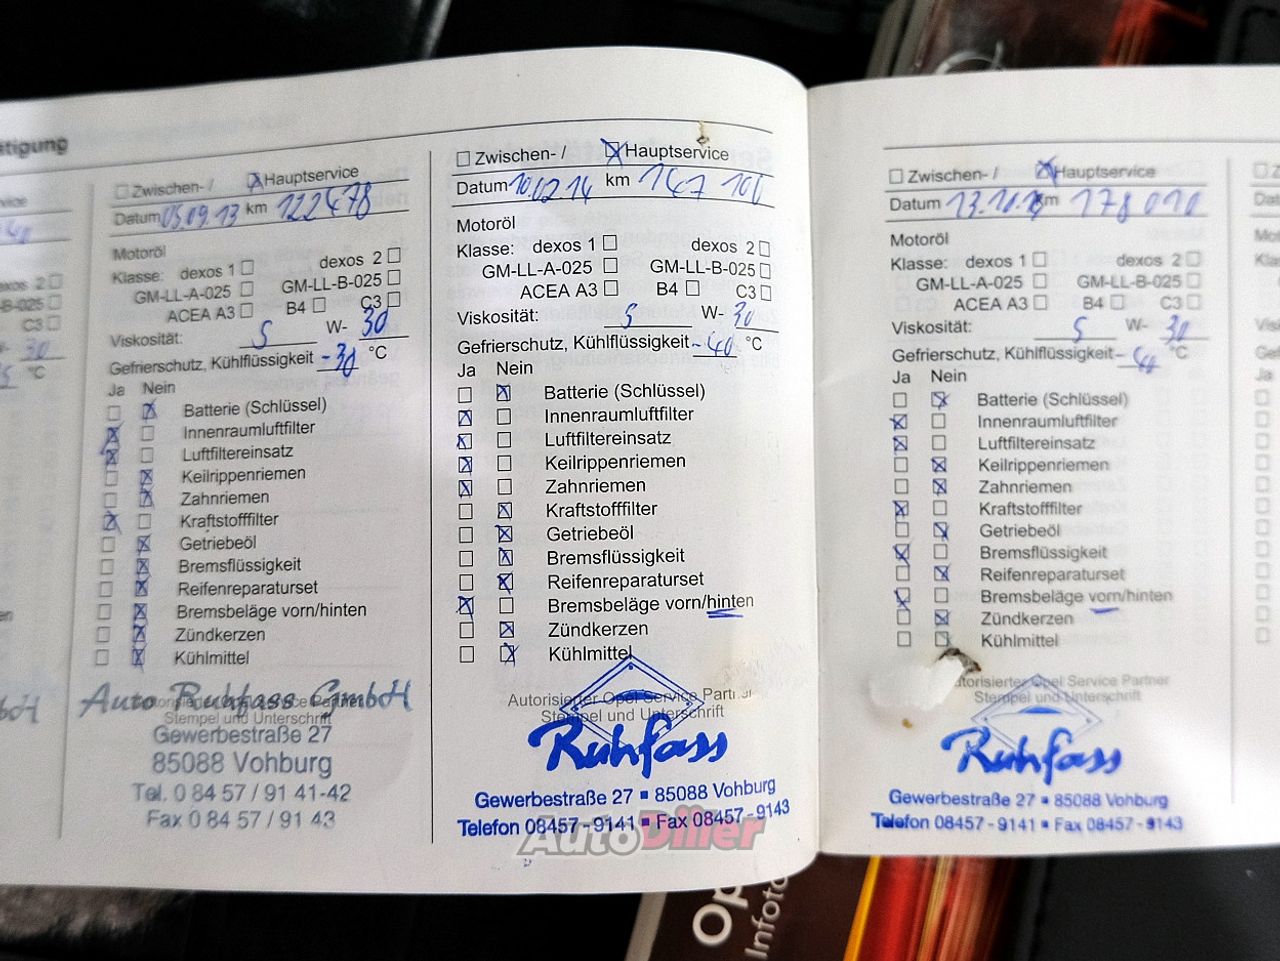 ätigung
Zwischen- / Hauptservice
Datum 05.09.13 km 122478
Motoröl
Klasse: dexos 1 dexos 2
GM-LL-A-025 GM-LL-B-025
ACEA A3 B4 C3
Viskosität: 5 W- 30
Gefrierschutz, Kühlflüssigkeit -30 °C
Ja Nein
Batterie (Schlüssel)
Innenraumluftfilter
Luftfiltereinsatz
Keilrippenriemen
Zahnriemen
Kraftstofffilter
Getriebeöl
Bremsflüssigkeit
Reifenreparaturset
Bremsbeläge vorn/hinten
Zündkerzen
Kühlmittel
Auto Ruhfass GmbH
Stempel und Unterschrift
Gewerbestraße 27
85088 Vohburg
Tel. 0 84 57 / 91 41-42
Fax 0 84 57 / 91 43
Zwischen- / Hauptservice
Datum 10.02.14 km 147 100
Motoröl
Klasse: dexos 1 dexos 2
GM-LL-A-025 GM-LL-B-025
ACEA A3 B4 C3
Viskosität: 5 W- 30
Gefrierschutz, Kühlflüssigkeit -40 °C
Ja Nein
Batterie (Schlüssel)
Innenraumluftfilter
Luftfiltereinsatz
Keilrippenriemen
Zahnriemen
Kraftstofffilter
Getriebeöl
Bremsflüssigkeit
Reifenreparaturset
Bremsbeläge vorn/hinten
Zündkerzen
Kühlmittel
Autorisierter Opel Service Partner
Stempel und Unterschrift
Ruhfass
Gewerbestraße 27 ▪ 85088 Vohburg
Telefon 08457-9141 ▪ Fax 08457-9143
AutoDiler
Zwischen- / Hauptservice
Datum km 178 010
Motoröl
Klasse: dexos 1 dexos 2
GM-LL-A-025 GM-LL-B-025
ACEA A3 B4 C3
Viskosität: 5 W- 30
Gefrierschutz, Kühlflüssigkeit °C
Ja Nein
Batterie (Schlüssel)
Innenraumluftfilter
Luftfiltereinsatz
Keilrippenriemen
Zahnriemen
Kraftstofffilter
Getriebeöl
Bremsflüssigkeit
Reifenreparaturset
Bremsbeläge vorn/hinten
Zündkerzen
Kühlmittel
Opel Service Partner
Stempel und Unterschrift
Ruhfass
Gewerbestraße 27 ▪ 85088 Vohburg
Telefon 08457-9141 ▪ Fax 08457-9143